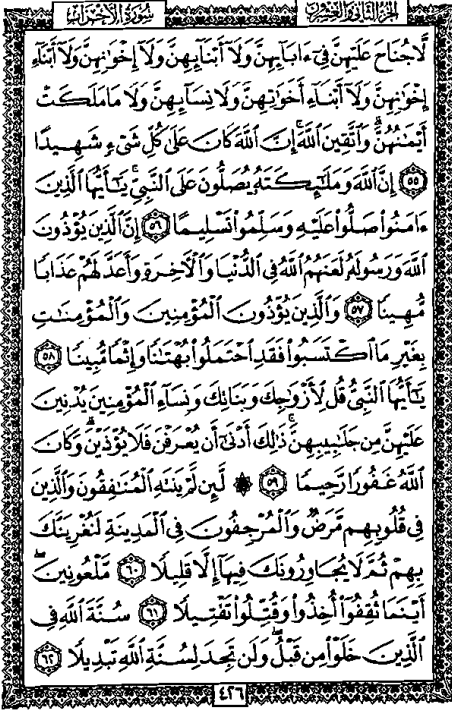 الجزء الثاني والعشرون سورة الأحزاب
لَّا جُنَاحَ عَلَيْهِنَّ فِىٓ ءَابَآئِهِنَّ وَلَآ أَبْنَآئِهِنَّ وَلَآ إِخْوَٰنِهِنَّ وَلَآ أَبْنَآءِ
إِخْوَٰنِهِنَّ وَلَآ أَبْنَآءِ أَخَوَٰتِهِنَّ وَلَا نِسَآئِهِنَّ وَلَا مَا مَلَكَتْ
أَيْمَٰنُهُنَّ ۗ وَٱتَّقِينَ ٱللَّهَ ۚ إِنَّ ٱللَّهَ كَانَ عَلَىٰ كُلِّ شَىْءٍ شَهِيدًا
٥٥ إِنَّ ٱللَّهَ وَمَلَٰٓئِكَتَهُۥ يُصَلُّونَ عَلَى ٱلنَّبِىِّ ۚ يَٰٓأَيُّهَا ٱلَّذِينَ
ءَامَنُوا۟ صَلُّوا۟ عَلَيْهِ وَسَلِّمُوا۟ تَسْلِيمًا ٥٦ إِنَّ ٱلَّذِينَ يُؤْذُونَ
ٱللَّهَ وَرَسُولَهُۥ لَعَنَهُمُ ٱللَّهُ فِى ٱلدُّنْيَا وَٱلْءَاخِرَةِ وَأَعَدَّ لَهُمْ عَذَابًا
مُّهِينًا ٥٧ وَٱلَّذِينَ يُؤْذُونَ ٱلْمُؤْمِنِينَ وَٱلْمُؤْمِنَٰتِ
بِغَيْرِ مَا ٱكْتَسَبُوا۟ فَقَدِ ٱحْتَمَلُوا۟ بُهْتَٰنًا وَإِثْمًا مُّبِينًا ٥٨
يَٰٓأَيُّهَا ٱلنَّبِىُّ قُل لِّأَزْوَٰجِكَ وَبَنَاتِكَ وَنِسَآءِ ٱلْمُؤْمِنِينَ يُدْنِينَ
عَلَيْهِنَّ مِن جَلَٰبِيبِهِنَّ ۚ ذَٰلِكَ أَدْنَىٰٓ أَن يُعْرَفْنَ فَلَا يُؤْذَيْنَ ۗ وَكَانَ
ٱللَّهُ غَفُورًا رَّحِيمًا ٥٩ ۞ لَّئِن لَّمْ يَنتَهِ ٱلْمُنَٰفِقُونَ وَٱلَّذِينَ
فِى قُلُوبِهِم مَّرَضٌ وَٱلْمُرْجِفُونَ فِى ٱلْمَدِينَةِ لَنُغْرِيَنَّكَ
بِهِمْ ثُمَّ لَا يُجَاوِرُونَكَ فِيهَآ إِلَّا قَلِيلًا ٦٠ مَّلْعُونِينَ ۖ
أَيْنَمَا ثُقِفُوٓا۟ أُخِذُوا۟ وَقُتِّلُوا۟ تَقْتِيلًا ٦١ سُنَّةَ ٱللَّهِ فِى
ٱلَّذِينَ خَلَوْا۟ مِن قَبْلُ ۖ وَلَن تَجِدَ لِسُنَّةِ ٱللَّهِ تَبْدِيلًا ٦٢
٤٢٦